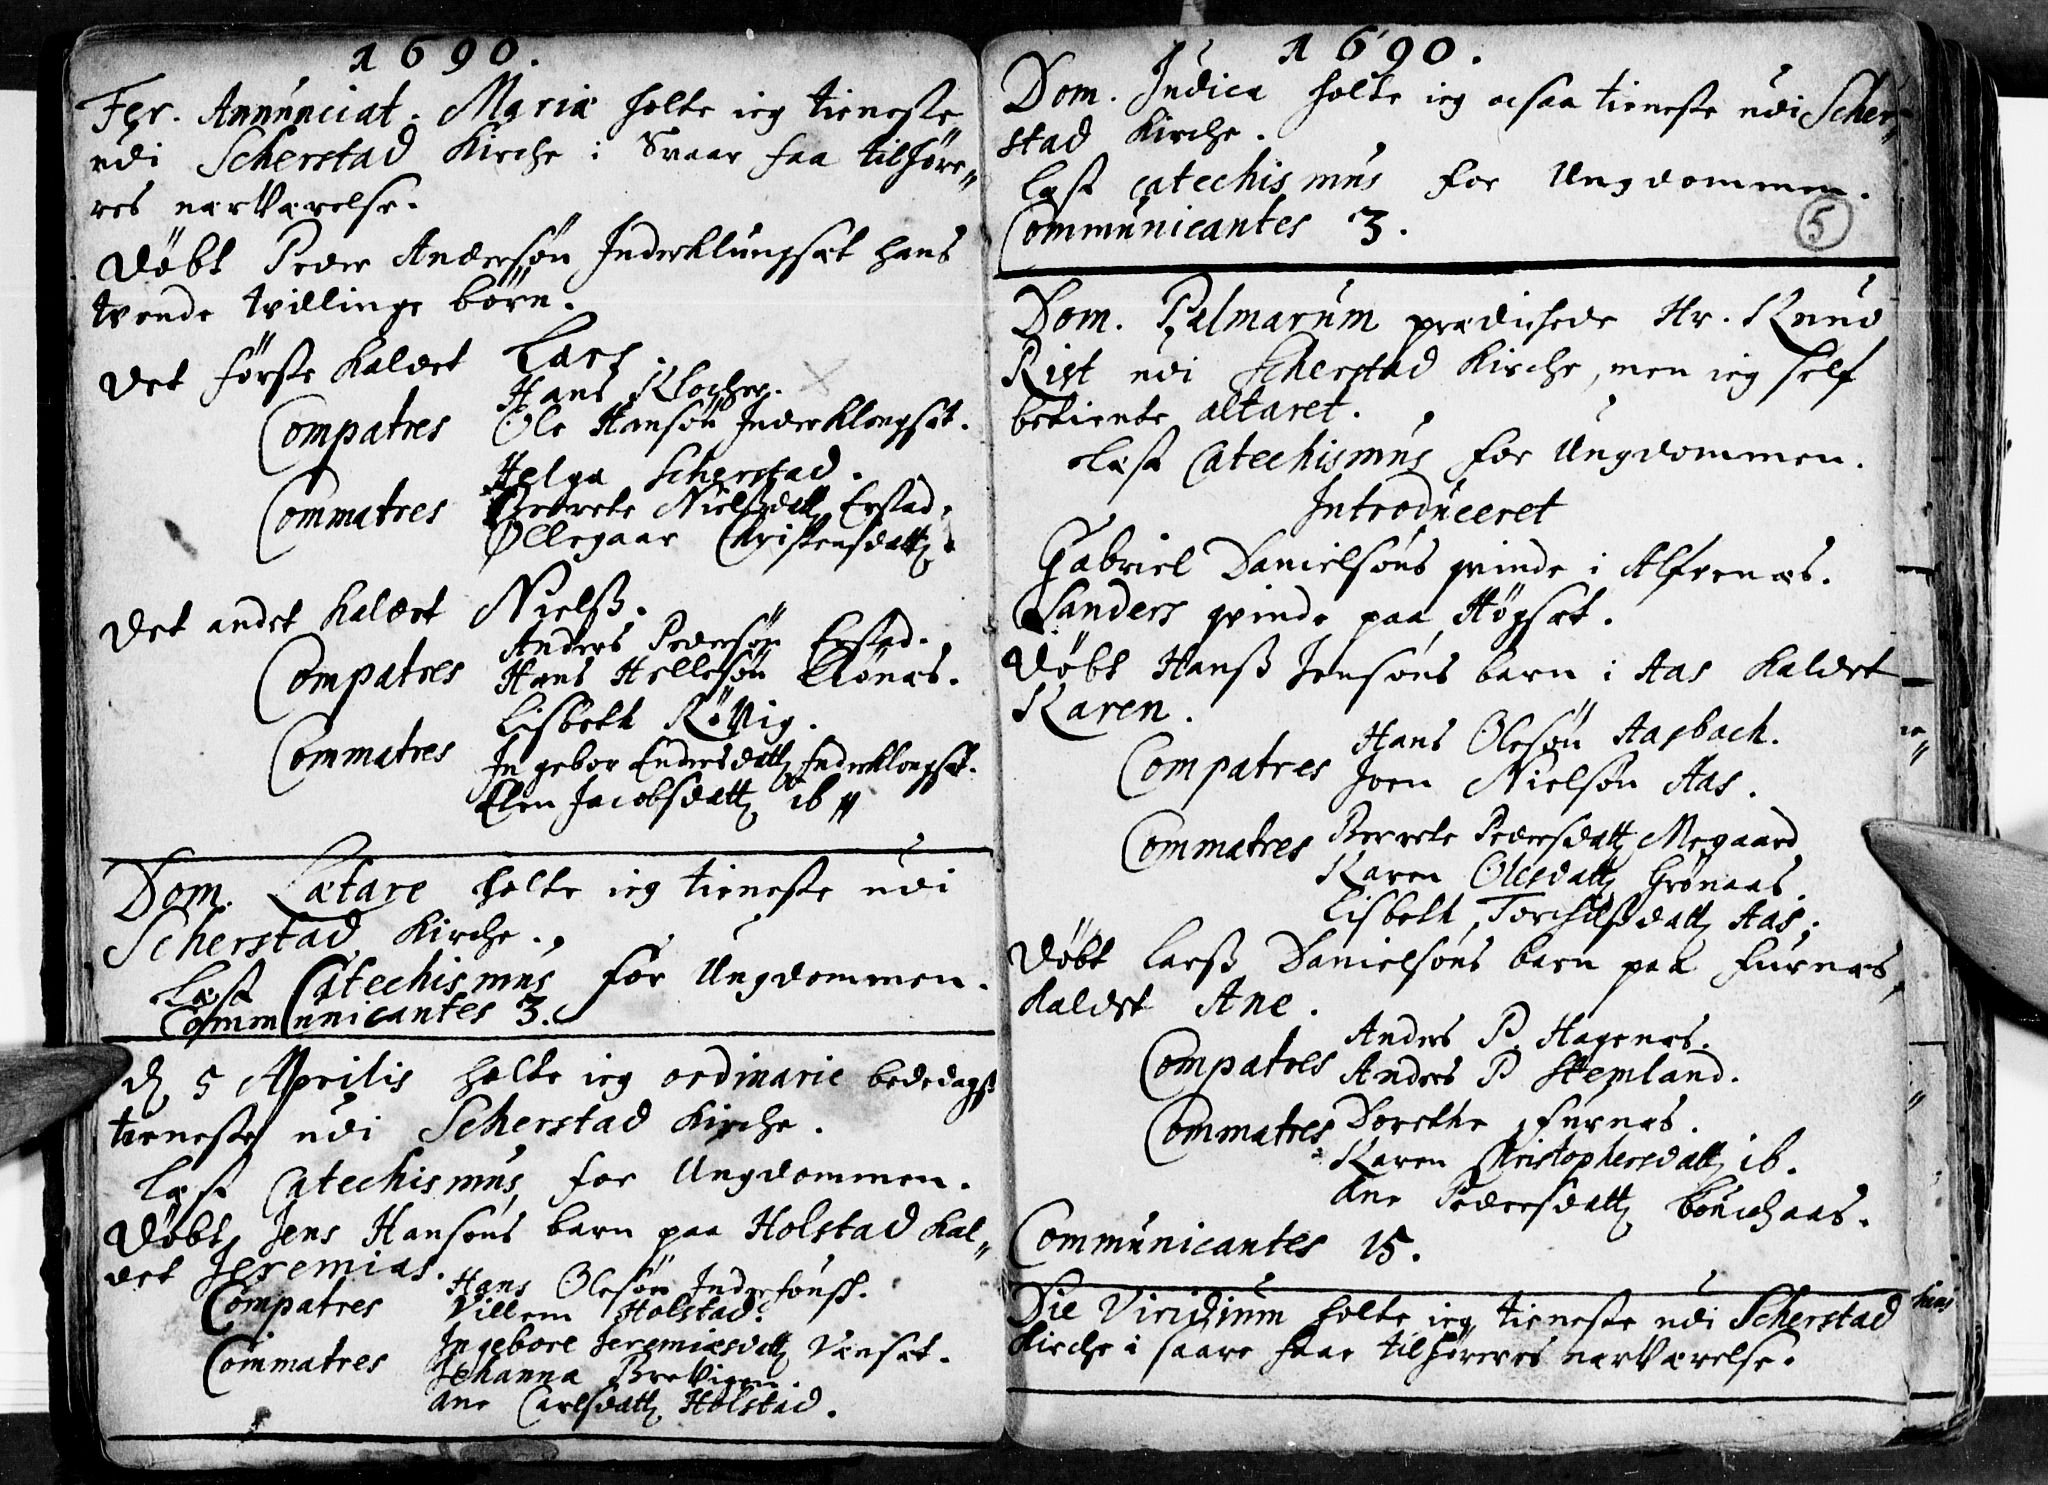 1690.
Fer. Annunciat. Mariæ holte ieg tieneste
udi Scherstad Kirche i Svaar faa tilhøre„
res nærværelse.
Døbt Peder Andersøn Inderklungsæt hans
tvende tvillinge børn.
Det første kaldet Lars
Compatres Hans Klocher.
Ole Hansøn Inderklongsæt.
Commatres Helga Scherstad.
Berete Nielsdatt Erstad.
Øllegaar Christensdatt.
Det andet kaldet Nielß.
Compatres Anders Pedersøn Erstad.
Hans Hellesøn Elsnæs.
Commatres Lisbeth Røvig.
Ingebor Endersdatt Inderklongsæt.
Elen Jacobsdatt ib„
Dom. Lætare holte ieg tieneste udi
Scherstad Kirche.
Læst Catechismus for Ungdommen.
Communicantes 3.
d 5 Aprilis holte ieg ordinarie bededagß
tieneste udi Scherstad Kirche.
Læst Catechismus for Ungdommen.
Døbt Jens Hansøns barn paa Holstad kal„
det Jeremias.
Compatres Hans Olesøn
Villem Holstad.
Commatres Ingebore Jeremiæsdatt Vensæt.
Johanna Brevigen.
Ane Carlsdatt Holstad.
1690.
Dom. Judica holte ieg ocsaa tieneste udi Scher„
stad Kirche.
Læst Catechismus for Ungdommen.
Communicantes 3.
5
Dom. Palmarum prædichede Hr. Knud
Rist udi Scherstad Kirche, men ieg self
betiente altaret.
Læst Catechismus for Ungdommen.
Introduceret
Gabriel Danielsøns qvinde i Alfvenæs.
Sanders qvinde paa Høgsæt.
Døbt Hanß Jensøns barn i Aas kaldet
Karen.
Compatres Hans Olesøn Aasbach.
Joen Nielsøn Aas.
Commatres Berrete Pedersdatt Megaard
Karen Olesdatt Grønaas.
Lisbeth Torchilßdatt Aas.
Døbt Larß Danielsøns barn paa Furnæs,
kaldet Ane.
Compatres Anders P. Hagenæs.
Anders P Stemland.
Commatres Dorethe Furnæs.
Karen Christophersdatt ib.
Ane Pedersdatt
Communicantes 15.
Die Viridium holte ieg tieneste udi Scherstad
Kirche i saare faae tilhøreres nærværelse.